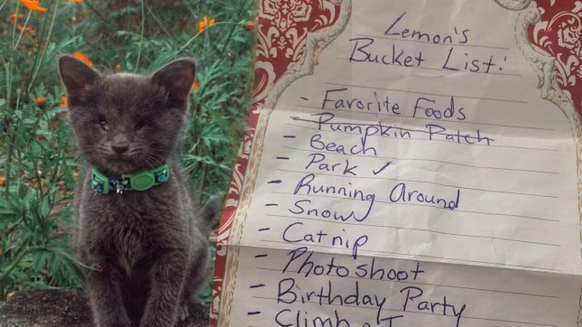 Lemon's
Bucket List:
- Favorite Foods
- Pumpkin Patch
- Beach
- Park ✓
- Running Around
- Snow
- Catnip
- Photoshoot
- Birthday Party
- Climb a T